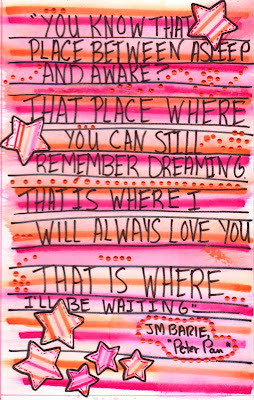 "YOU KNOW THAT
PLACE BETWEEN ASLEEP
AND AWAKE?
THAT PLACE WHERE
YOU CAN STILL
REMEMBER DREAMING
THAT IS WHERE I
WILL ALWAYS LOVE YOU
THAT IS WHERE
I'LL BE WAITING"
JM BARIE,
"Peter Pan"